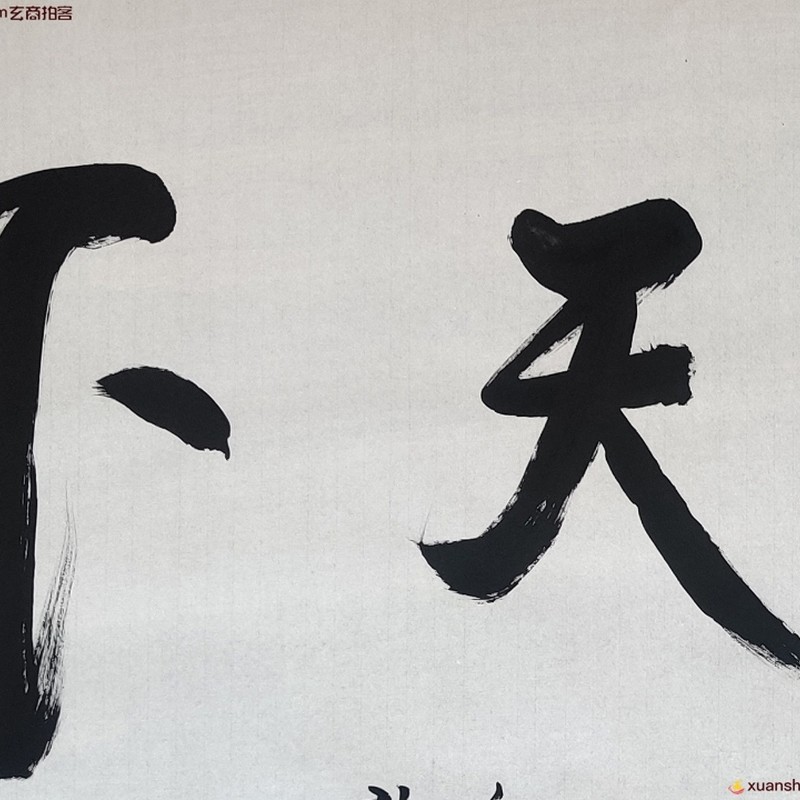 m玄商拍客
天下
xuansh